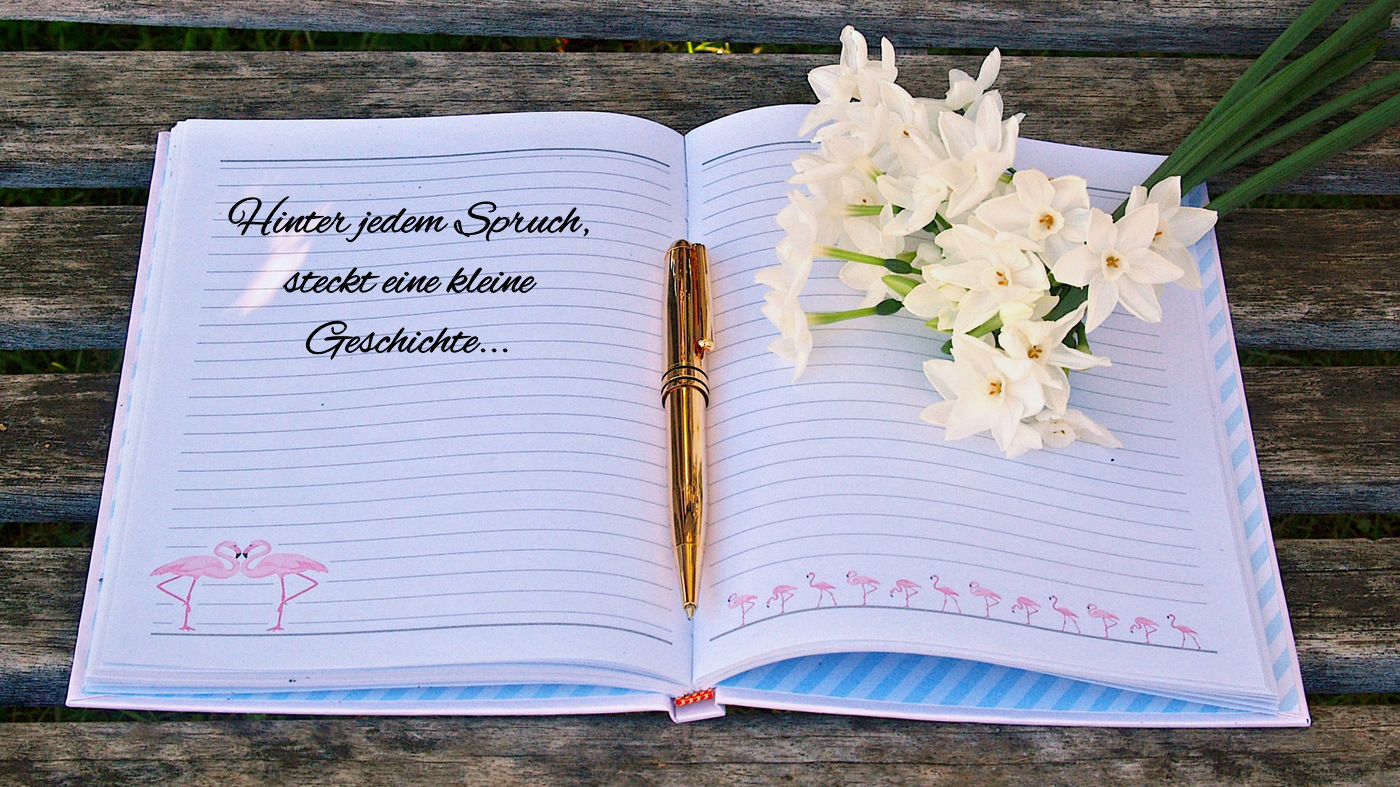 Hinter jedem Spruch,
steckt eine kleine
Geschichte...